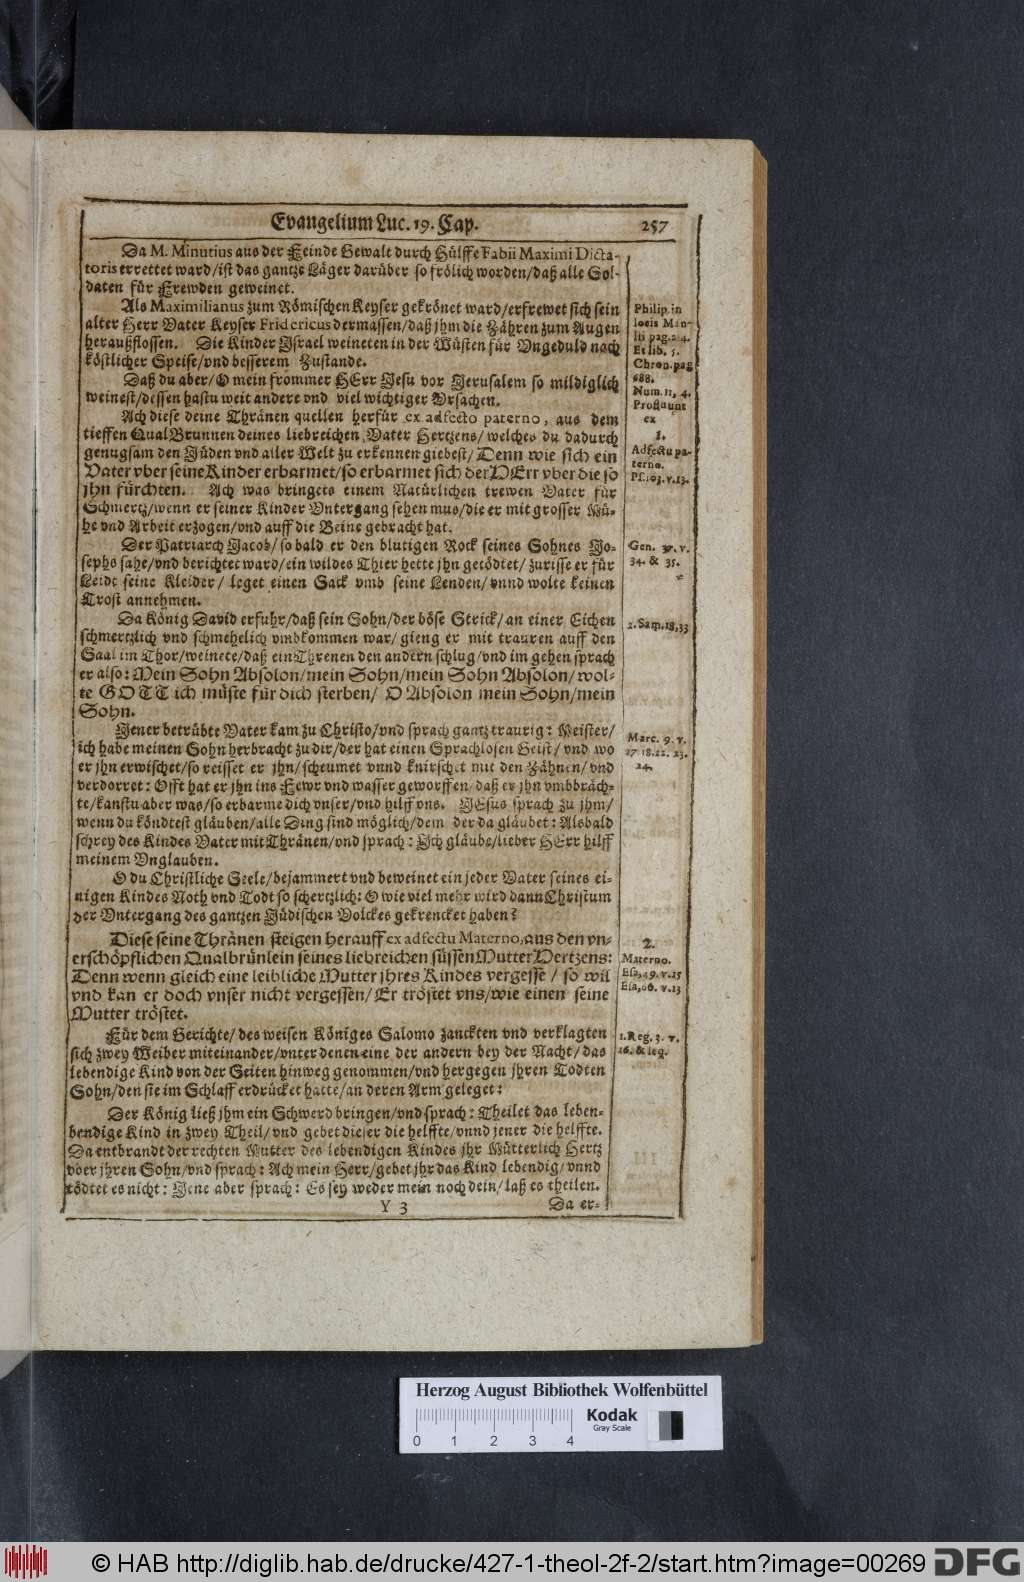 Evangelium Luc. 19. Cap. 257
Da M. Minutius aus der Feinde Gewalt durch Hülffe Fabii Maximi Dicta-
toris errettet ward/ist das gantze Läger darüber so frölich worden/daß alle Sol-
daten für Frewden geweinet.
Als Maximilianus zum Römischen Keyser gekrönet ward/erfrewet sich sein
alter Herr Vater Keyser Fridericus dermassen/daß jhm die Zähren zum Augen
heraußflossen. Die Kinder Israel weineten in der Wüsten für Ungeduld nach
köstlicher Speise/vnd besserem Zustande.
Daß du aber/O mein frommer HErr Jesu vor Jerusalem so mildiglich
weinest/dessen hastu weit andere vnd viel wichtiger Vrsachen.
Ach diese deine Thränen quellen herfür ex adfecto paterno, aus dem
tieffen QualBrunnen deines liebreichen Vater Hertzens/welches du dadurch
genugsam den Jüden vnd aller Welt zu erkennen giebest/Denn wie sich ein
Vater vber seine Kinder erbarmet/so erbarmet sich der HErr vber die so
jhn fürchten. Ach was bringets einem Natürlichen trewen Vater für
Schmertz/wenn er seiner Kinder Vntergang sehen mus/die er mit grosser Mü-
he vnd Arbeit erzogen/vnd auff die Beine gebracht hat.
Der Patriarch Jacob/so bald er den blutigen Rock seines Sohnes Jo-
sephs sahe/vnd berichtet ward/ein wildes Thier hette jhn getödtet/zurisse er für
Leide seine Kleider/leget einen Sack vmb seine Lenden/vnnd wolte keinen
Trost annehmen.
Da König David erfuhr/daß sein Sohn/der böse Strick/an einer Eichen
schmertzlich vnd schmehelich vmbkommen war/gieng er mit trauren auff den
Saal im Thor/weinete/daß ein Threnen den andern schlug/vnd im gehen sprach
er also: Mein Sohn Absolon/mein Sohn/mein Sohn Absolon/wol-
te GOTT ich müste für dich sterben/O Absolon mein Sohn/mein
Sohn.
Jener betrübte Vater kam zu Christo/vnd sprach gantz traurig: Meister/
ich habe meinen Sohn herbracht zu dir/der hat einen Sprachlosen Geist/vnd wo
er jhn erwischet/so reisset er jhn/scheumet vnnd knirschet mit den Zähnen/vnd
verdorret: Offt hat er jhn ins Fewr vnd wasser geworffen/daß er jhn vmbbräch-
te/kanstu aber was/so erbarme dich vnser/vnd hilff vns. JEsus sprach zu jhm/
wenn du köndtest gläuben/alle Ding sind möglich/dem der da gläubet: Alsbald
schrey des Kindes Vater mit Thränen/vnd sprach: Ich gläube/lieber HErr hilff
meinem Vnglauben.
O du Christliche Seele/bejammert vnd beweinet ein jeder Vater seines ei-
nigen Kindes Noth vnd Todt so schertzlich: O wie viel mehr wird dann Christum
der Vntergang des gantzen Jüdischen Volckes gekrencket haben?
Diese seine Thränen steigen herauff ex adfectu Materno, aus den vn-
erschöpflichen Qualbrünlein seines liebreichen süssen Mutter Hertzens:
Denn wenn gleich eine leibliche Mutter jhres Kindes vergesse/so wil
vnd kan er doch vnser nicht vergessen/Er tröstet vns/wie einen seine
Mutter tröstet.
Für dem Gerichte/des weisen Königes Salomo zanckten vnd verklagten
sich zwey Weiber miteinander/vnter denen eine der andern bey der Nacht/das
lebendige Kind von der Seiten hinweg genommen/vnd hergegen jhren Todten
Sohn/den sie im Schlaff erdrücket hatte/an deren Arm geleget:
Der König ließ jhm ein Schwerd bringen/vnd sprach: Theilet das leben-
bendige Kind in zwey Theil/vnd gebet dieser die helffte/vnnd jener die helffte.
Da entbrandt der rechten Mutter des lebendigen Kindes jhr Mütterlich Hertz
vber jhren Sohn/vnd sprach: Ach mein Herr/gebet jhr das Kind lebendig/vnnd
tödtet es nicht: Jene aber sprach: Es sey weder mein noch dein/laß es theilen.
Y 3 Da er-
Philip. in
locis Man-
lii pag. 214.
Et lib. 5.
Chron. pag
688.
Num. 11, 4.
Profluunt
ex
1.
Adfectu pa-
terno.
Ps. 103. v. 13.
Gen. 37. v.
34. & 35.
2. Sam. 18, 33
Marc. 9. v.
17 18. 22. 23.
24.
2.
Materno.
Esa, 49. v. 15
Esa, 66. v. 13
1. Reg. 3. v.
16. & seq.
Herzog August Bibliothek Wolfenbüttel
Kodak
Gray Scale
0 1 2 3 4
© HAB http://diglib.hab.de/drucke/427-1-theol-2f-2/start.htm?image=00269 DFG